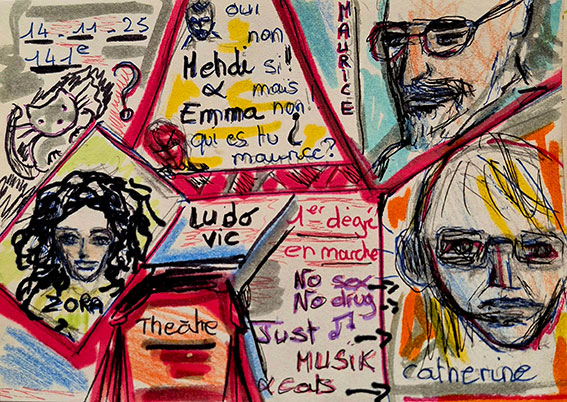 14-11-25
141e
?
oui
non
Mehdi si!
& mais
Emma non!
qui es tu
maurice?
MAURICE
ZORA
Ludo
vic
Theatre
1er degré
en marche
No sex
No drug
Just ♫
MUSIK
& Cats
Catherine